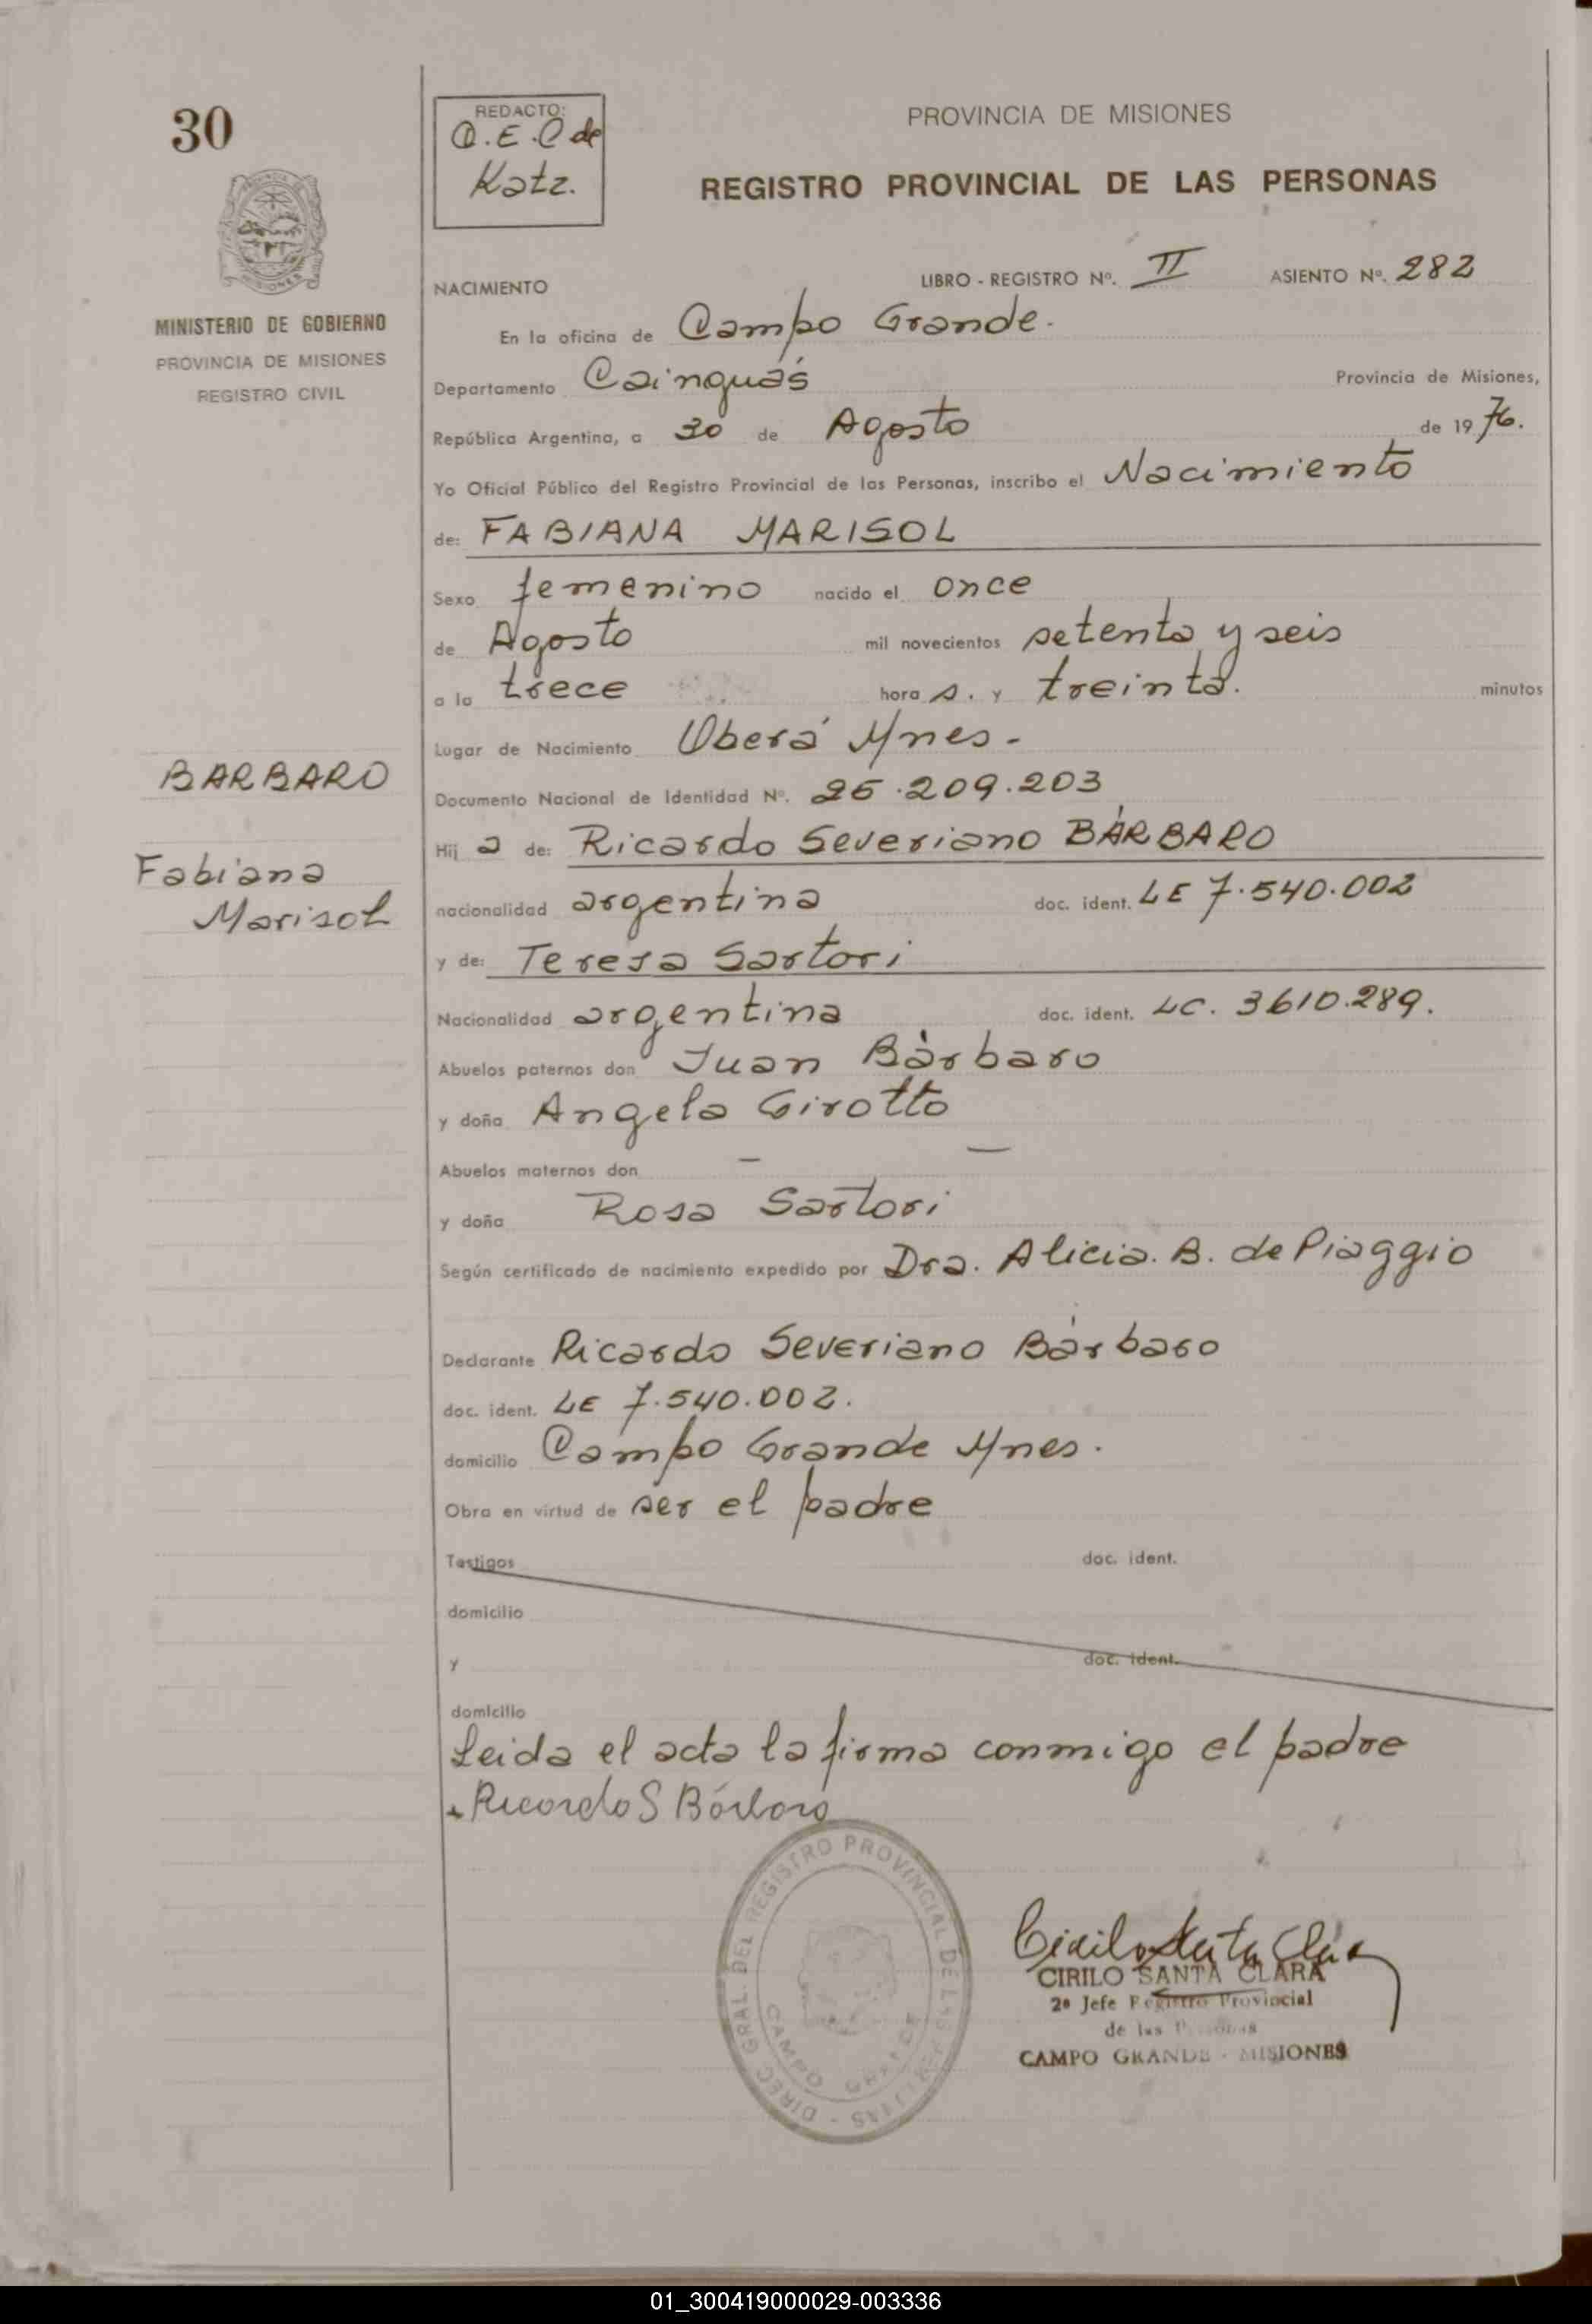 30
REDACTO:
O.E.C de
Katz.
PROVINCIA DE MISIONES
REGISTRO PROVINCIAL DE LAS PERSONAS
MINISTERIO DE GOBIERNO
PROVINCIA DE MISIONES
REGISTRO CIVIL
NACIMIENTO LIBRO - REGISTRO Nº. II ASIENTO Nº. 282
En la oficina de Campo Grande.
Departamento Cainguás Provincia de Misiones,
República Argentina, a 30 de Agosto de 1976.
Yo Oficial Público del Registro Provincial de las Personas, inscribo el Nacimiento
de: FABIANA MARISOL
Sexo femenino nacido el once
de Agosto mil novecientos setenta y seis
a la trece hora s. y treinta. minutos
Lugar de Nacimiento Oberá Mnes.
BARBARO
Fabiana
Marisol
Documento Nacional de Identidad Nº. 25.209.203
Hij a de: Ricardo Severiano BÁRBARO
nacionalidad argentina doc. ident. LE 7.540.002
y de: Teresa Sartori
Nacionalidad argentina doc. ident. LC. 3610.289.
Abuelos paternos don Juan Bárbaro
y doña Angela Girotto
Abuelos maternos don — —
y doña Rosa Sartori
Según certificado de nacimiento expedido por Dra. Alicia. B. de Piaggio
Declarante Ricardo Severiano Bárbaro
doc. ident. LE 7.540.002.
domicilio Campo Grande Mnes.
Obra en virtud de ser el padre
Testigos doc. ident.
domicilio
y doc. ident.
domicilio
Leida el acta la firma conmigo el padre
Ricardo S Bárbaro
DIREC. GRAL. DEL REGISTRO PROVINCIAL DE LAS PERSONAS
CAMPO GRANDE
Cirilo Santa Clara
CIRILO SANTA CLARA
2º Jefe Registro Provincial
de las Personas
CAMPO GRANDE - MISIONES
01_300419000029-003336